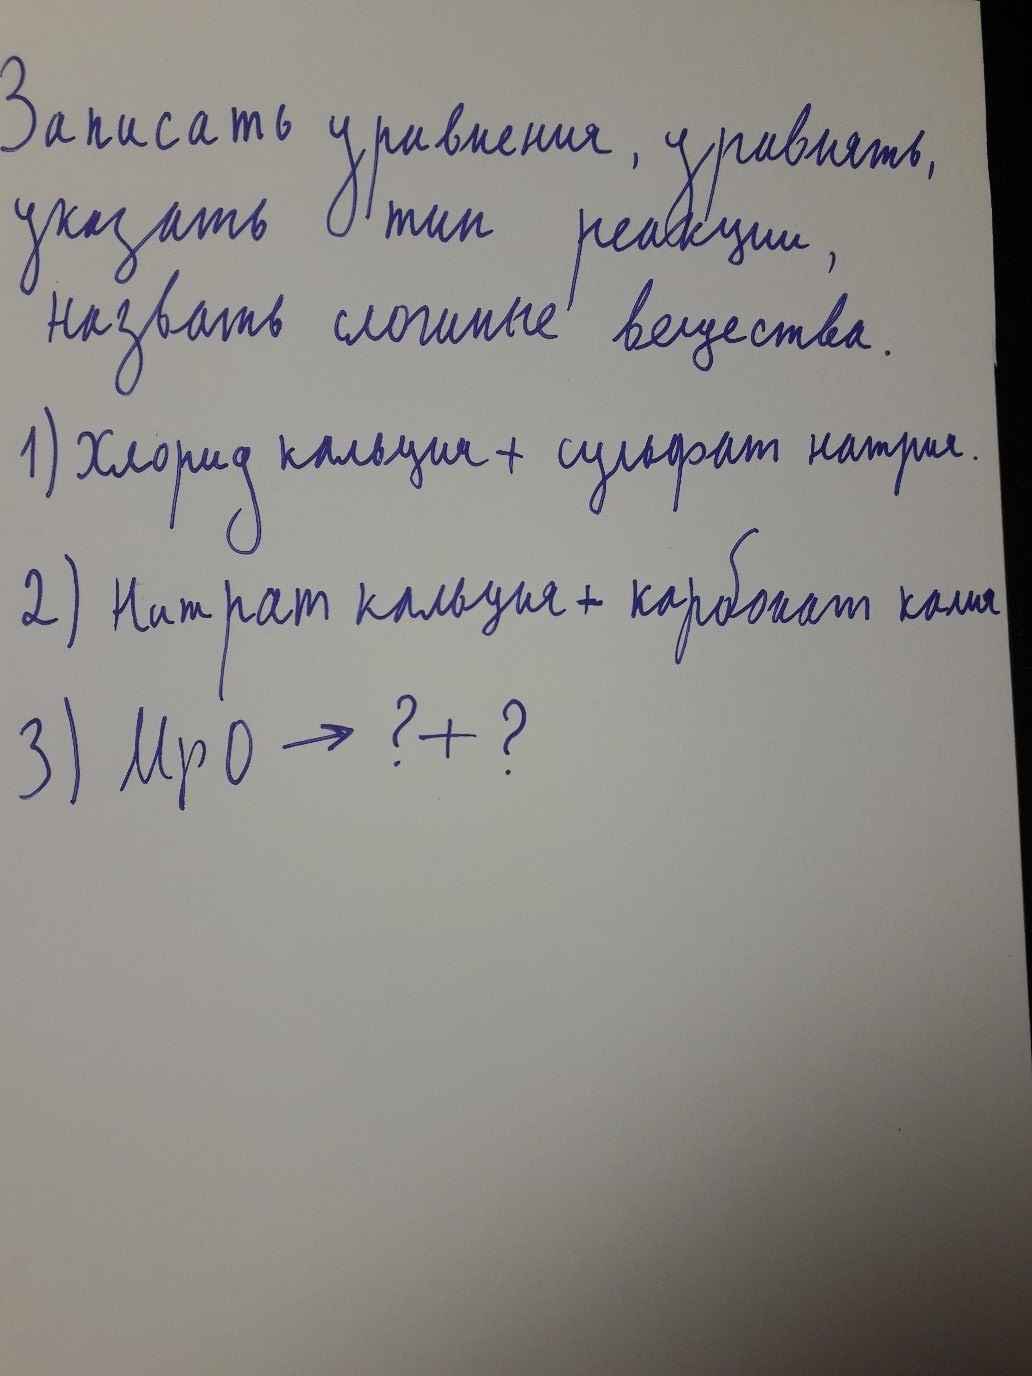 Записать уравнения, уравнять,
указать тип реакции,
назвать сложные вещества.
1) Хлорид кальция + сульфат натрия.
2) Нитрат кальция + карбонат калия
3) MpO → ? + ?